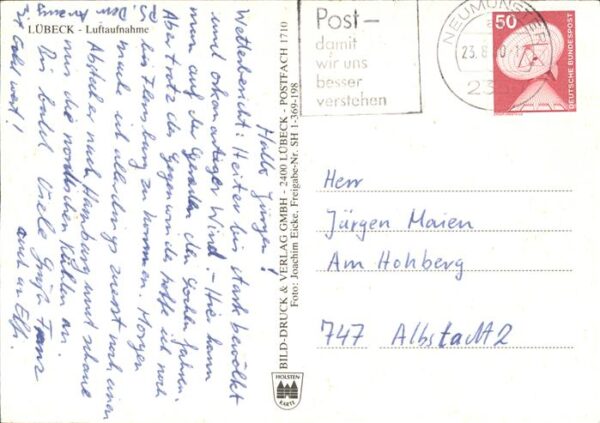 LÜBECK - Luftaufnahme
Hallo Jürgen!
Wetterbericht: Heiter bis stark bewölkt
und orkanartiger Wind. - Hier kann
man auf der Geraden den Großen fahren.
Aber trotz der Gegenwinde hoffe ich noch
bis Flensburg zu kommen. Morgen
mache ich allerdings zuerst noch einen
Abstecher nach Hamburg und schaue
mir die nordischen Kühlen an.
Bis bald Viele Grüße Franz
auch an Elfi.
PS. Dein Anzug
ist Gold wert!
BILD-DRUCK & VERLAG GMBH - 2400 LÜBECK - POSTFACH 1710
Foto: Joachim Eicke, Freigabe-Nr. SH 1-369-198
HOLSTEN
KARTE
Post-
damit
wir uns
besser
verstehen
NEUMÜNSTER
23.8.
50
DEUTSCHE BUNDESPOST
Herr
Jürgen Maien
Am Hohberg
747 Albstadt 2